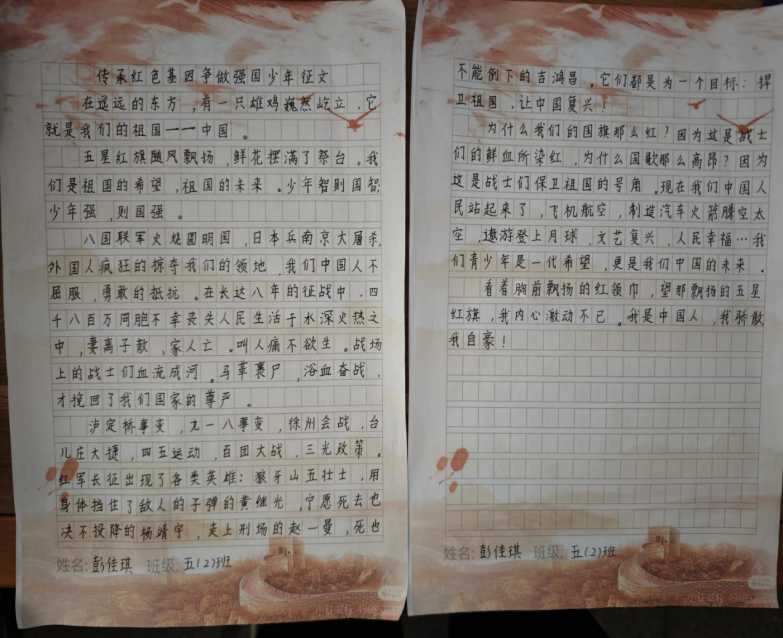 传承红色基因争做强国少年征文
在遥远的东方,有一只雄鸡巍然屹立,它
就是我们的祖国一一中国。
五星红旗随风飘扬,鲜花摆满了祭台。我
们是祖国的希望,祖国的未来。少年智则国智,
少年强,则国强。
八国联军火烧圆明园,日本兵南京大屠杀,
外国人疯狂的掠夺我们的领地,我们中国人不
屈服,勇敢的抵抗。在长达八年的征战中,四
千八百万同胞不幸丧失人民生活于水深火热之
中,妻离子散,家人亡。叫人痛不欲生。战场
上的战士们血流成河。马革裹尸,浴血奋战,
才挽回了我们国家的尊严。
泸定桥事变,九一八事变,徐州会战,台
儿庄大捷,四五运动,百团大战,三光政策。
红军长征出现了各类英雄:狼牙山五壮士,用
身体挡住了敌人的子弹的黄继光,宁愿死去也
决不投降的杨靖宇,走上刑场的赵一曼,死也
姓名:彭佳琪 班级:五(2)班
不能倒下的吉鸿昌。它们都是为一个目标:捍
卫祖国,让中国复兴!
为什么我们的国旗那么红?因为这是战士
们的鲜血所染红,为什么国歌那么高昂?因为
这是战士们保卫祖国的号角。现在我们中国人
民站起来了,飞机航空,制造汽车火箭腾空太
空,遨游登上月球,文艺复兴,人民幸福…我
们青少年是一代希望。更是我们中国的未来。
看着胸前飘扬的红领巾,望那飘扬的五星
红旗,我内心激动不已。我是中国人,我骄傲
我自豪!
姓名:彭佳琪 班级:五(2)班